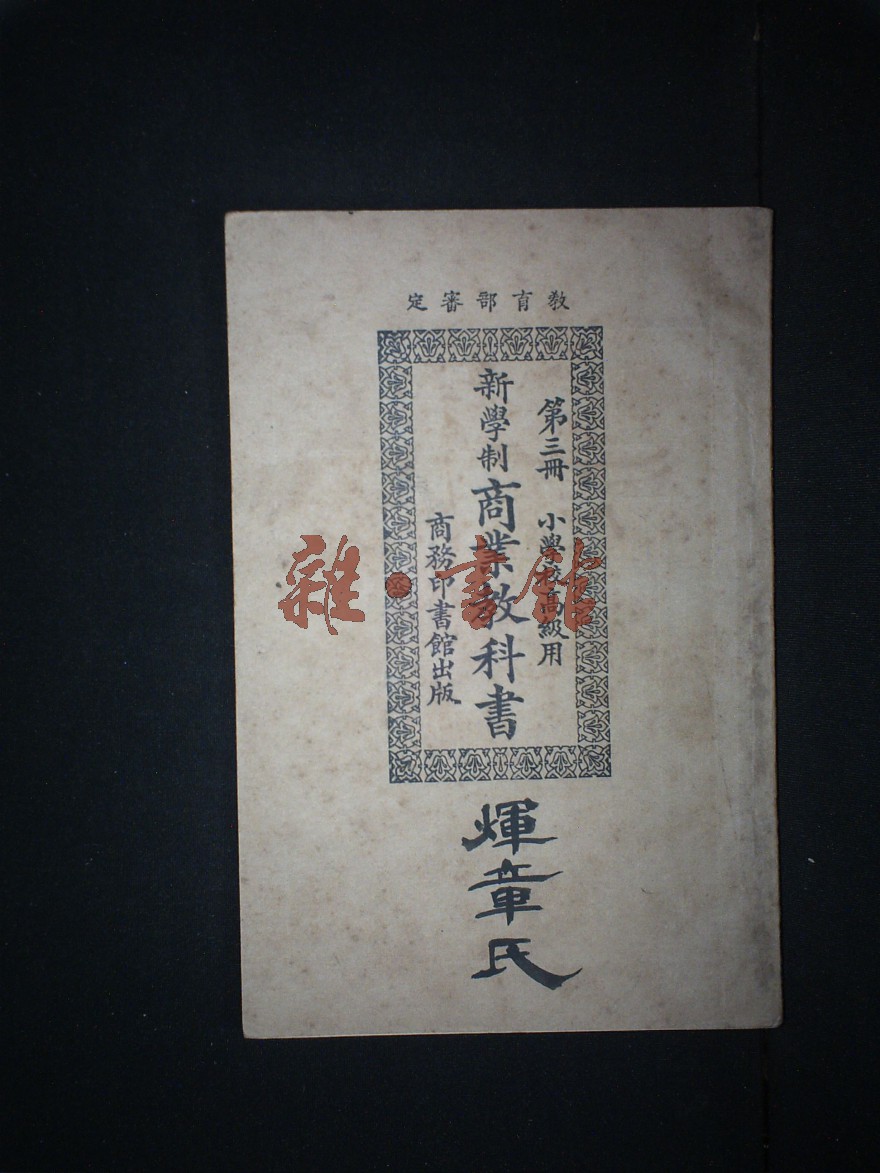 教育部審定
第三冊 小學校高級用
新學制商業教科書
商務印書館出版
煇章氏
雜·書館